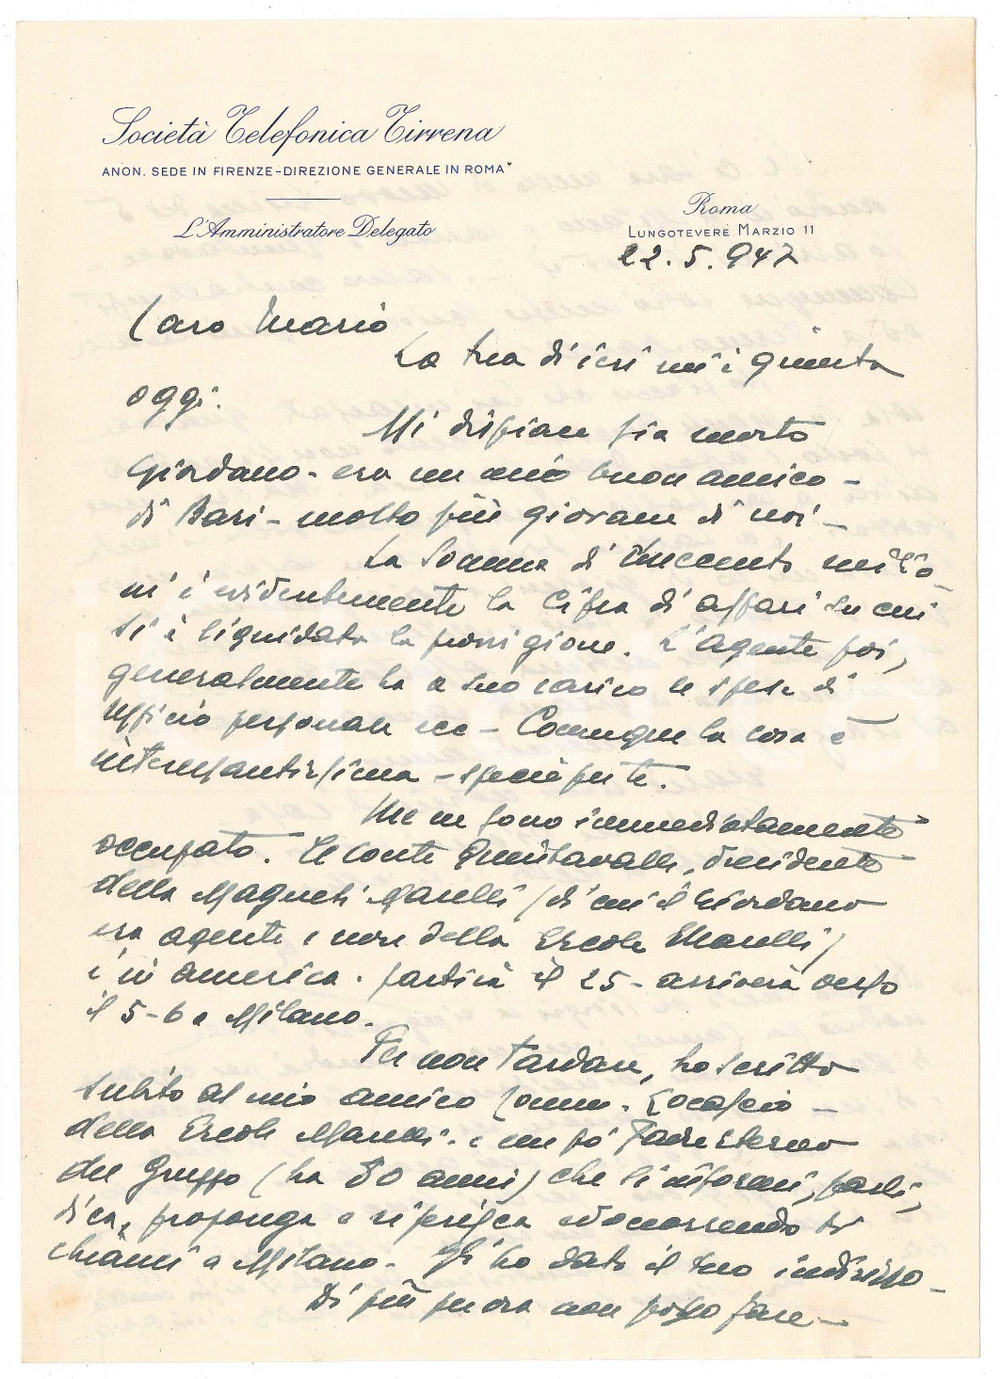 Società Telefonica Tirrena
ANON. SEDE IN FIRENZE-DIREZIONE GENERALE IN ROMA
L'Amministratore Delegato
Roma
LUNGOTEVERE MARZIO 11
22.5.947
Caro Mario
La tua di ieri mi è giunta
oggi.
Mi dispiace sia morto
Giordano - era un mio buon amico -
di Bari - molto più giovane di noi -
La somma di duecento milio
ni è evidentemente la cifra di affari su cui
si è liquidata la provvigione. L'agente poi,
generalmente ha a suo carico le spese di
ufficio personale ecc - Comunque la cosa è
interessantissima - specie per te.
Me ne sono immediatamente
occupato. Il conte Quintavalle, presidente
della Magneti Marelli / di cui il Giordano
era agente e non della Ercole Marelli /
è in America. partirà il 25 - arriverà verso
il 5-6 a Milano.
Per non tardare, ho scritto
subito al mio amico Comm. Locascio -
della Ercole Marelli - è un pò Padreterno
del Gruppo (ha 80 anni) che si informi, parli,
dica, proponga e riferisca edoccorrendo ti
chiami a Milano. Gli ho dato il tuo indirizzo -
Di più per ora non posso fare -